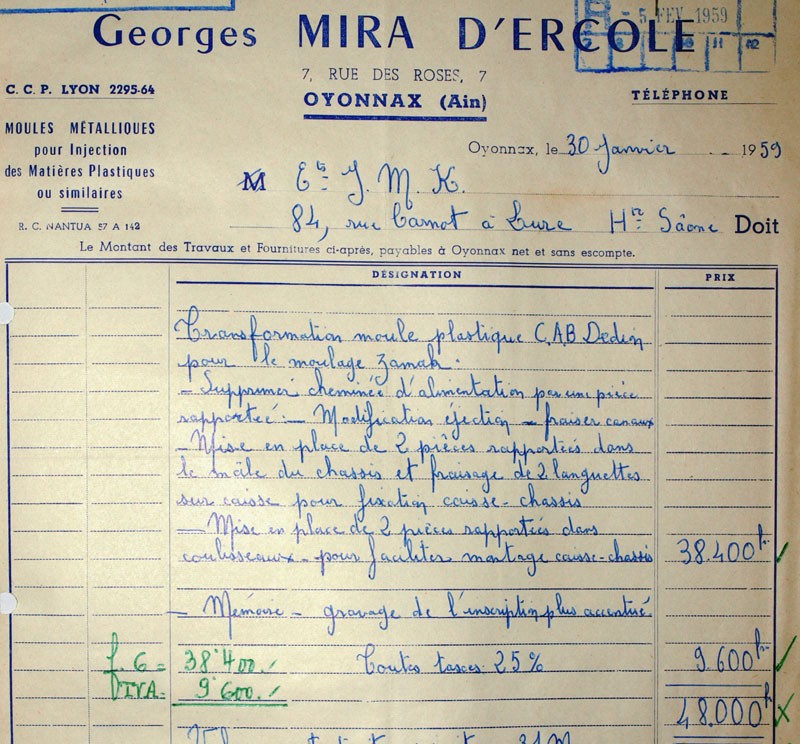 5 FEV 1959
Georges MIRA D'ERCOLE
11 12
7, RUE DES ROSES, 7
C. C. P. LYON 2295-64
OYONNAX (Ain)
TÉLÉPHONE
MOULES MÉTALLIQUES
pour Injection
des Matières Plastiques
ou similaires
R. C. NANTUA 57 A 142
Oyonnax, le 30 Janvier 1959
M Ets J. M. K.
84, rue Carnot à Lure Hte Saône Doit
Le Montant des Travaux et Fournitures ci-après, payables à Oyonnax net et sans escompte.
DÉSIGNATION PRIX
Transformation moule plastique C.A.B Dedin
pour le moulage zamak.
- Supprimer cheminée d'alimentation par une pièce
rapportée - Modification éjection - fraiser canaux
- Mise en place de 2 pièces rapportées dans
le mâle du chassis et fraisage de 2 languettes
sur caisse pour fixation caisse-chassis
- Mise en place de 2 pièces rapportées dans
coulisseaux - pour faciliter montage caisse-chassis 38.400 fr
- Memoire - gravage de l'inscription plus accentué.
f. G = 38'400. Toutes taxes 25% 9.600 fr
TVA = 9'600.
48.000 fr